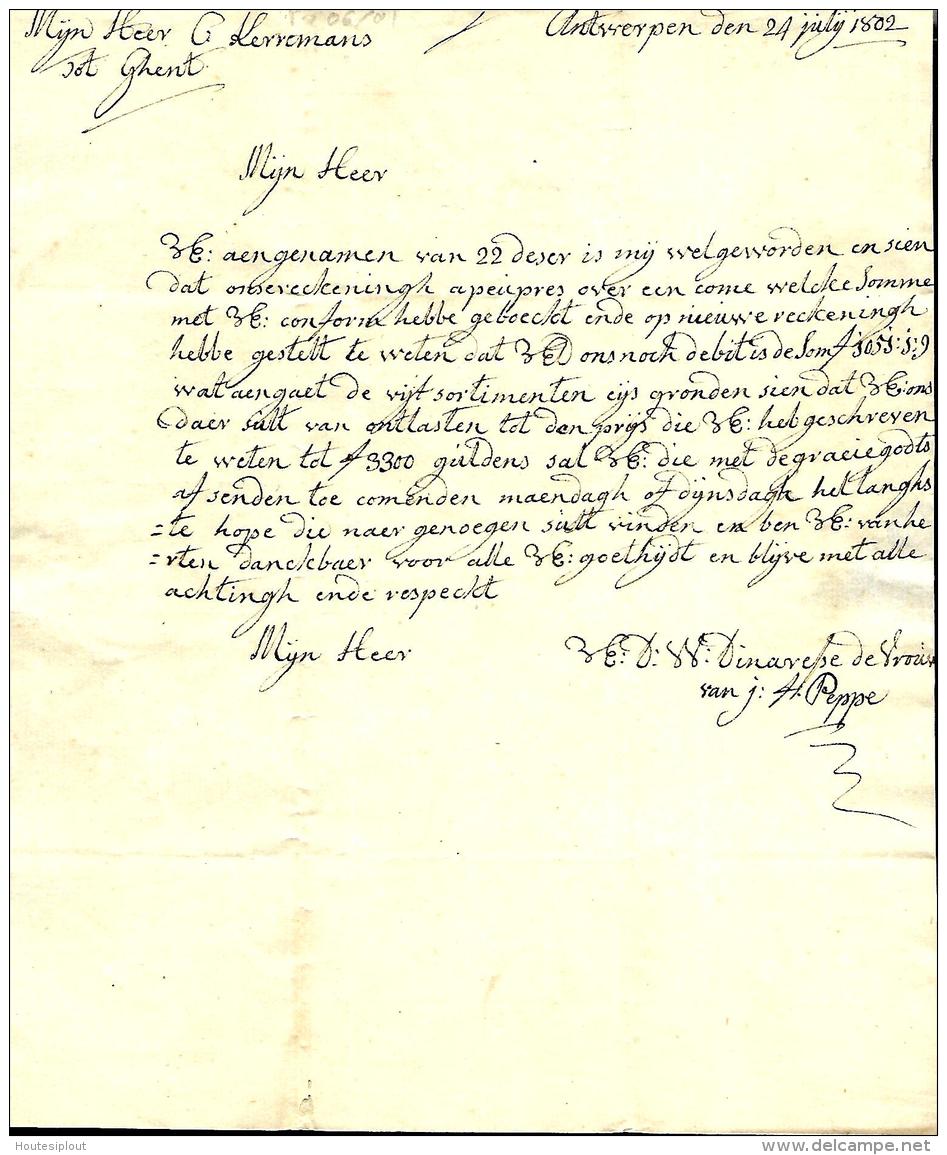 Mijn Heer C Kerremans
Antwerpen den 24 july 1802
tot Ghent
Mijn Heer
VE: aengenamen van 22 deser is mij wel geworden en sien
dat onse reckeningh a peu pres over een come welcke Somme
met VE: conform hebbe geboeckt ende op nieuwe reckeningh
hebbe gestelt te weten dat VE ons noch debit is de Som f 1051:1:9
wat aengaet de vijf sortimenten gronden sien dat VE: ons
daer sult van ontlasten tot den prijs die VE: heb geschreven
te weten tot f 3300 guldens sal VE: die met de graeie godts
af senden toe comenden maendagh of dijnsdagh het langhs
=te hope die naer genoegen sult vinden en ben VE: van he
=rten danckbaer voor alle VE: goethijdt en blijve met alle
achtingh ende respeckt
Mijn Heer
VE: D: W: Dinaresse de Vrouw
van j: A: Peppe
Houtesiplout
www.delcampe.net